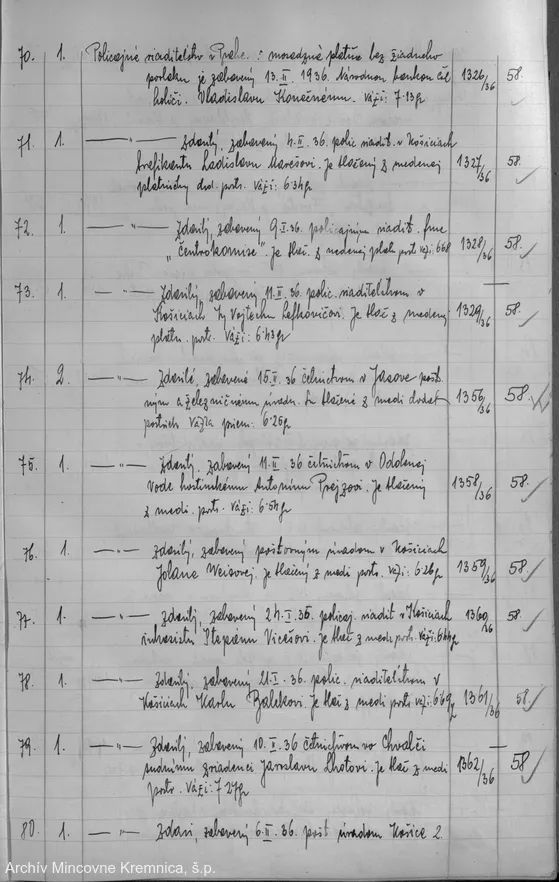 70. 1. Policajné riaditelstvo v Prahe : mosadzná platňa bez žiadneho
povlaku je zabavený 13.II 1936. Národnou bankou čsl 1326/36 58.
Vladislavu Konečnému. Váži: 7·13g
71. 1. —"— Zdarilý, zabavený 4.II.36. polic. riadit. v Košiciach
trafikantu Ladislavu Marešovi. Je tlačený z medenej 1327/36 58.
platničky dod. postr. Váži: 6·34g
72. 1. —"— Zdarilý, zabavený 9.I.36. policajným riadit. fme
„Centrokomise". Je tlač. z medenej platn postr váži: 6·68 1328/36 58.
73. 1. —"— Zdarilý, zabavený 11.II.36. polic. riaditelstvom v
Košiciach Vojtechu Lefkovičovi. Je tlač z medenej 1329/36 58.
platn. postr. Váži: 6·43g
74. 2. —"— Zdarilé, zabavené 15.II.36 četnictvom v Jasove pošt.
ným a železničnému úradu. Sú tlačené z medi dodat 1356/36 58.
postrieb Vážia priem: 6·25g
75. 1. —"— Zdarilý, zabavený 11.II.36 četníctvom v Odolenej
Vode hostinskému Antonínu Prejzovi. Je tlačený 1358/36 58.
z medi. postr. Váži: 6·54g
76. 1. —"— Zdarilý, zabavený poštovným úradom v Košiciach
Jolane Weisovej. Je tlačený z medi postr. Váži: 6·26g 1359/36 58.
77. 1. —"— Zdarilý, zabavený 24.I.36. policaj. riadit v Košiciach
Štepanu Vicešovi. Je tlač z medi postr. Váži: 6·44g 1360/36 58.
78. 1. —"— Zdarilý, zabavený 21.I.36. polic. riaditelstvom v
Košiciach Karlu Balekovi. Je tlač z medi postr váži: 6·69g 1361/36 58.
79. 1. —"— Zdarilý, zabavený 10.II.36 četníctvom vo Chvalči
súdnímu zriadenci Jaroslavu Lhotovi. Je tlač z medi 1362/36 58
postr. Váži: 7·27g
80. 1. —"— Zdari, zabavený 6.II.36. pošt úradom Košice 2
Archív Mincovne Kremnica, š.p.